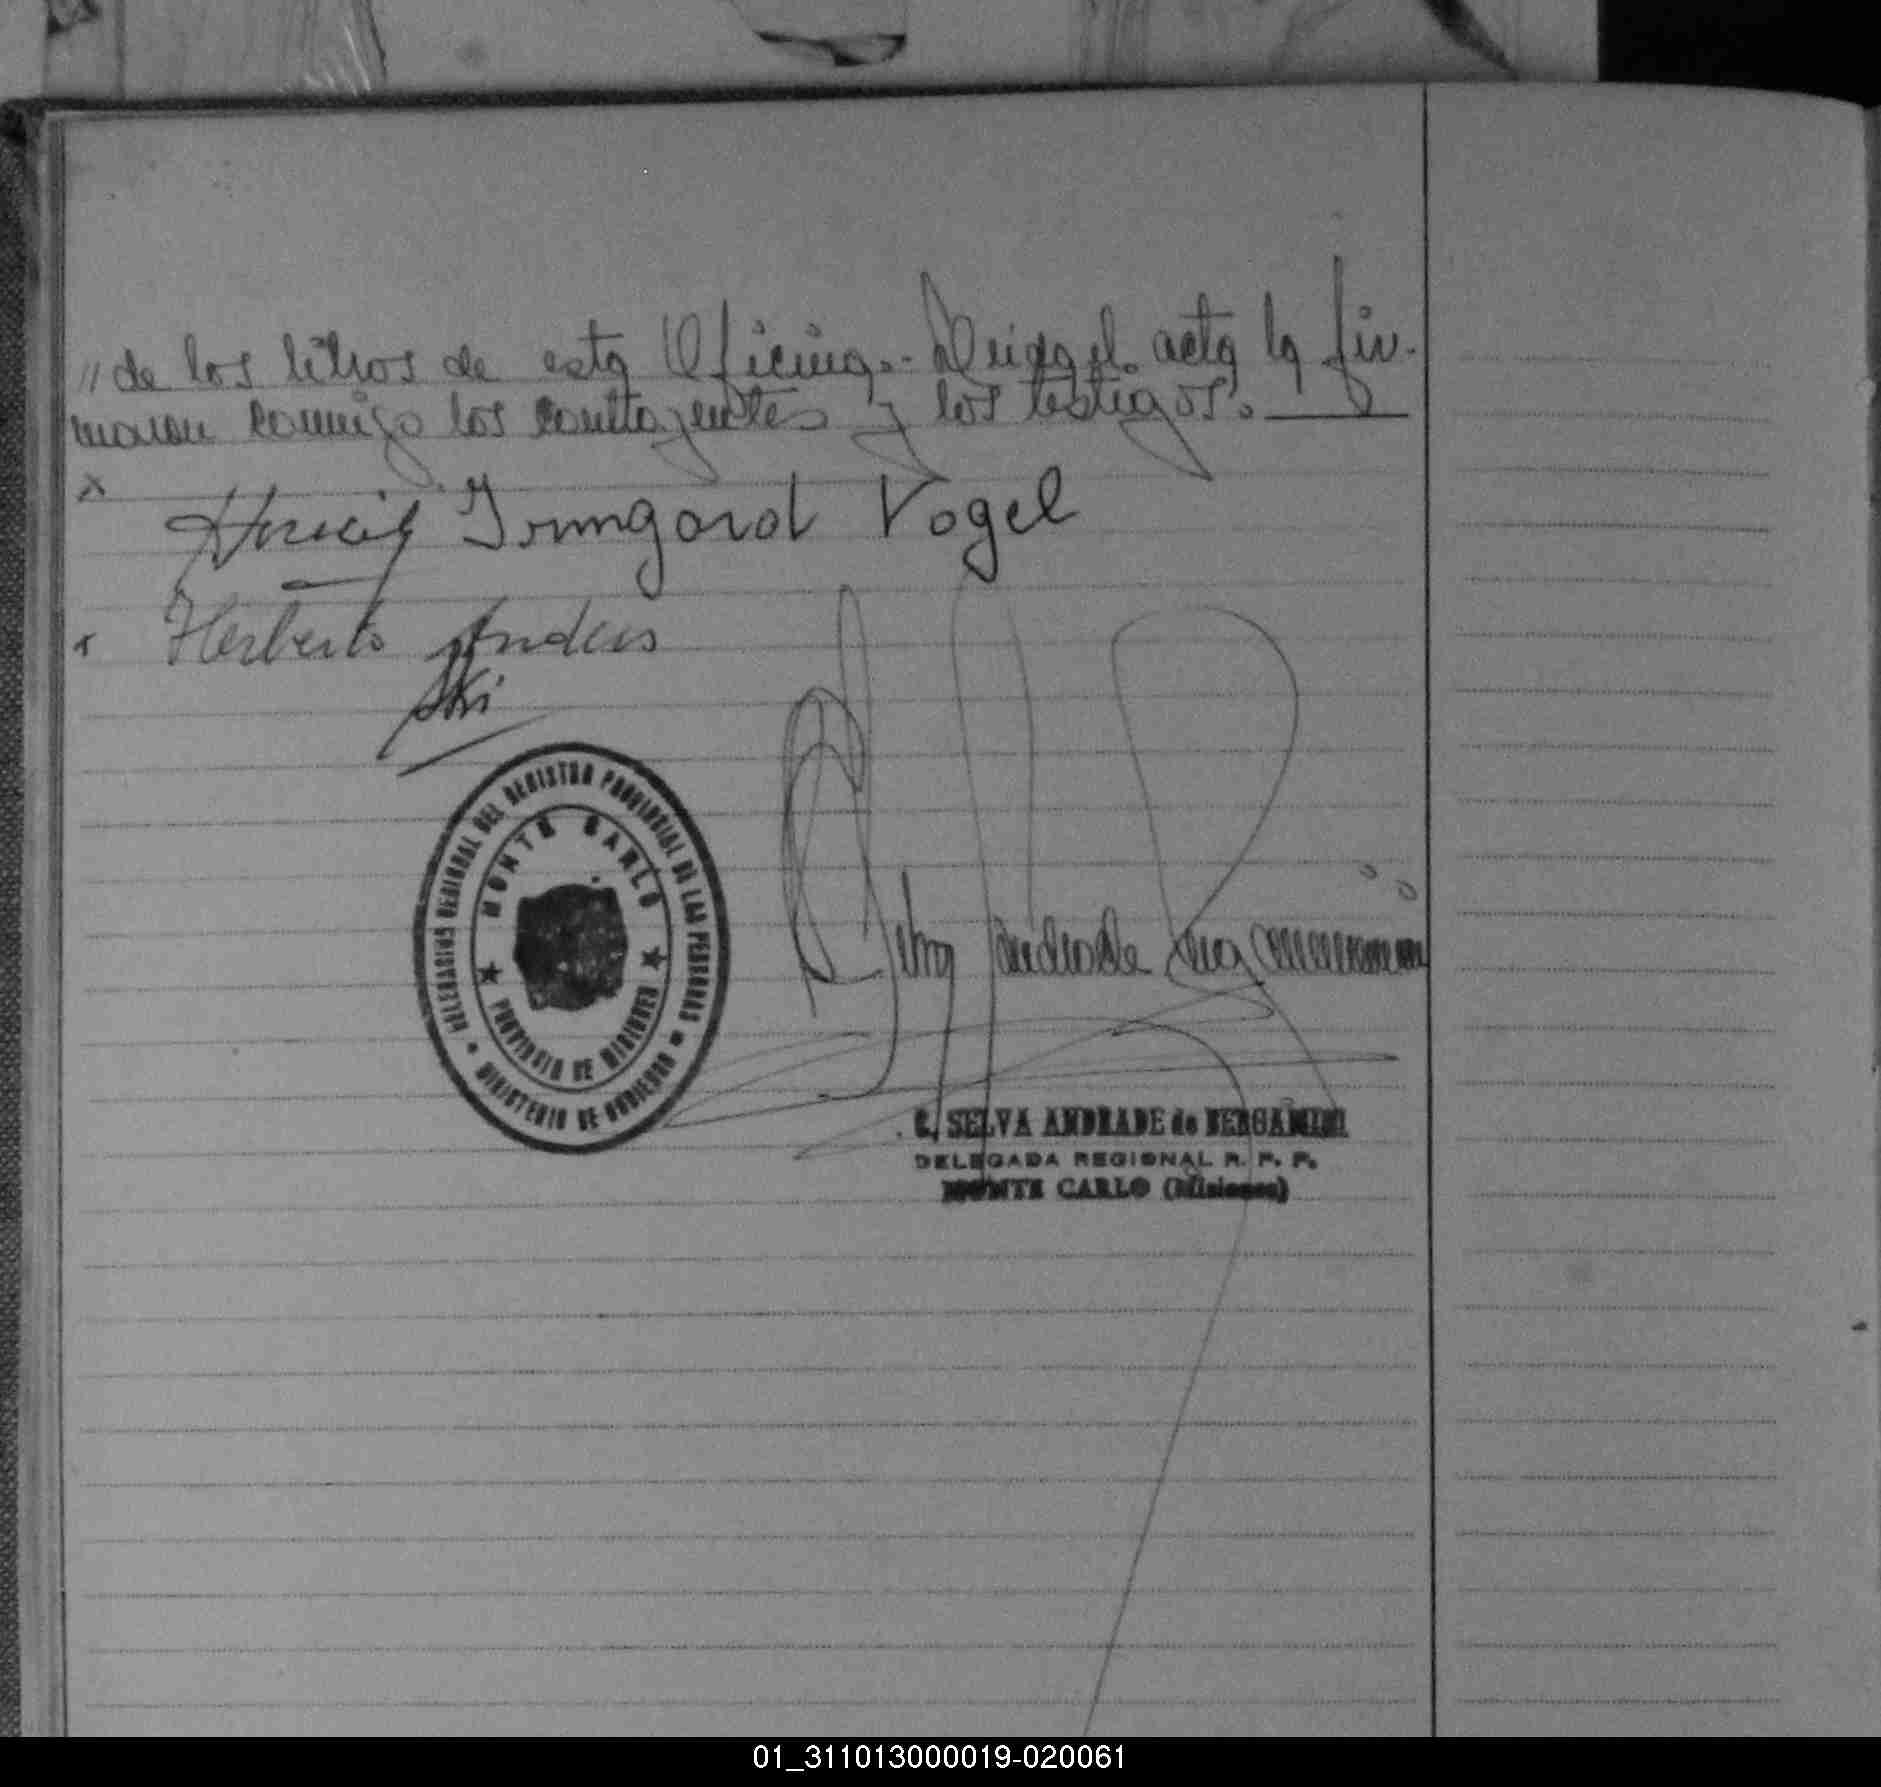 "de los libros de esta Oficina.- Leida el acta la fir-
maron conmigo los contrayentes y los testigos.
x
Irmgard Vogel
x Herberto Anders
DELEGACION REGIONAL DEL REGISTRO PROVINCIAL DE LAS PERSONAS
MONTE CARLO
PROVINCIA DE MISIONES
MINISTERIO DE GOBIERNO
Selva Andrade de
C. SELVA ANDRADE de BERGAMINI
DELEGADA REGIONAL R. P. P.
MONTE CARLO (Misiones)
01_311013000019-020061